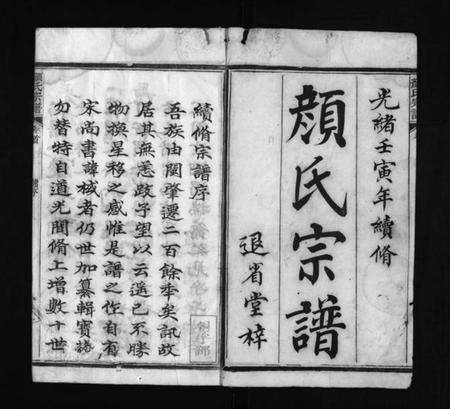 光緒壬寅年續脩
顏氏宗譜
退省堂梓
續脩宗譜序
吾族由閩肇遷二百餘年矣訊故
居其無恙跂予望以云遙已不勝
物換星移之感惟是譜之作自有
宋尚書諱棫者仍世加纂輯寶諸
勿替特自道光間脩上增數十世